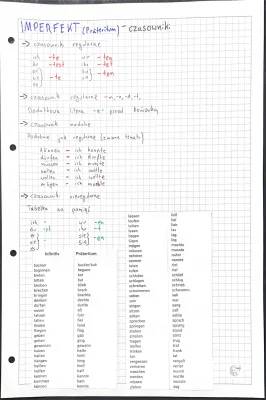 IMPERFEKT (Präteritum) - czasowniki
→ czasowniki regularne
ich -te wir -ten
du -test ihr -tet
er
sie -te -ten
es
→ czasowniki regularne
Dodatkowa litera -e- przed końcówką
→ czasowniki modalne
Podobnie jak regularne (zmiana tematu)
können - ich konnte
dürfen - ich durfte
müssen - ich musste
sollen - ich sollte
wollen - ich wollte
mögen - ich mochte
→ czasowniki nieregularne
Tabelka na pamięć
ich - wir -en
du -st ihr -t
er
sie - -en
es
Infinitiv Präteritum
beginnen begann
bleiben blieb
brechen brach
bringen brachte
denken dachte
dürfen durfte
essen aß
fahren fuhr
fallen fiel
finden fand
fliegen flog
geben gab
gehen ging
gewinnen gewann
haben hatte
halten hielt
hängen hing
heißen hieß
helfen half
kennen kannte
kommen kam
können konnte
lassen ließ
laufen lief
lesen las
liegen lag
lügen log
mögen mochte
müssen musste
nehmen nahm
nennen nannte
rufen rief
schlafen schlief
schreiben schrieb
schwimmen schwamm
sehen sah
sein war
singen sang
sitzen saß
sprechen sprach
springen sprang
stehen stand
sterben starb
tragen trug
treffen traf
trinken trank
tun tat
vergessen vergaß
verlieren verlor
waschen wusch
werden wurde
wissen wusste
ziehen zog